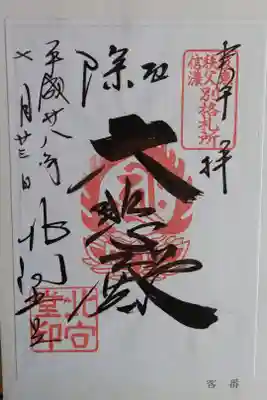 奉拝
秩父別格札所
信濃
厄除
大悲殿
平成廿八年
七月廿三日
北向堂
北向堂印